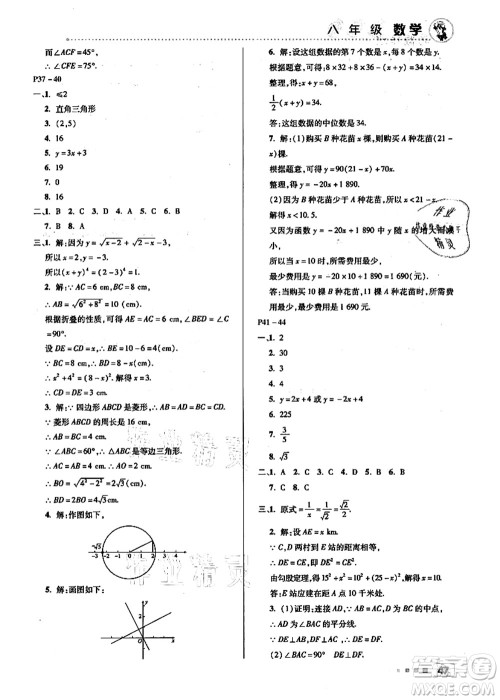 八年级 数学
而 ∠ACF=45°,
∴ ∠CFE=75°.
P37-40
一、1. ≤2
2. 直角三角形
3. (2,5)
4. 16
5. y=3x+3
6. 19
7. 0
8. 16
二、1. B 2. C 3. D 4. B
三、1. 解:因为y=√x-2+√2-x-3,
所以x=2.
所以(x+y)⁴=1.
2. 解:∵ AC=6 cm,BC=8 cm,
∴ AB=√6²+8²=10(cm).
根据折叠的性质,可得AE=AC=6 cm,∠BED=∠C
=90°.
设DE=CD=x,
∴ BE=10-6=4(cm).
∵ BC=8 cm,
∴ BD=(8-x)cm.
∴ x²+4²=(8-x)². 解得x=3.
∴ CD=DE=3 cm.
3. 解:∵ 四边形ABCD是菱形,
∴ AB=BC=CD=AD.
∵ 菱形ABCD的周长是16 cm,
∴ AB=BC=4 cm.
∵ ∠ABC=60°,∴ △ABC是等边三角形.
∴ AC=AB=4 cm.
∴ AO=2 cm.
∴ BO=√4²-2²=√12(cm).
∴ BD=2√12 cm.
4. 解:作图如下,
-√5
-3 -1 0 1 2 3
5. 解:画图如下,
y
x
6. 解:设这组数据的第7个数是x,第8个数是y.
根据题意,可得8×33+8×42-(x+y)=35×15.
整理,得(x+y)=75.
1/2(x+y)=34.
答:这组数据的中位数是34.
7. 解:(1)购买B种花苗x棵,则购买A种花苗(21-x)
棵.
根据题意,得y=90(21-x)+70x.
整理,得y=-20x+1 890.
答:y=-20x+1 890.
(2)因为B种花苗少于A种花苗,所以x<21-x. 解
得x<10.5.
又因为函数y=-20x+1 890中y随x的增大而减小,
所以当x=10时,y有最小值.
最少费用是-20×10+1 890=1 690(元).
答:购买A种花苗11棵,B种花苗10棵时,所需费
用最少,最少费用是1 690元.
P41-44
一、1. 2
2. 30
4. x>4
5. y=2x+4或y=-2x+4
6. 225
7. 3/5
8. √3
二、1. A 2. D 3. C 4. D 5. D 6. C
7. C 8. C
三、1. 原式=1/x=1/√2=√2/2.
2. 解:设AE=x km.
∵ C,D两村到E站的距离相等,
∴ DE=CE,即DE²=CE².
由勾股定理,得15²+x²=10²+(25-x)². 解得x=10.
答:E站应建在距A点10千米处.
3. (1)证明:∵ 点D,E,F分别是边AB,BC,AC的中点,
∴ DE∥AF,EF∥AD.
∴ 四边形ADEF是平行四边形.
又∵ ∠BAC=90°,
∴ 平行四边形ADEF是矩形.
∴ AE=DF.
(2)∠BAC=90°.
47
作业精灵